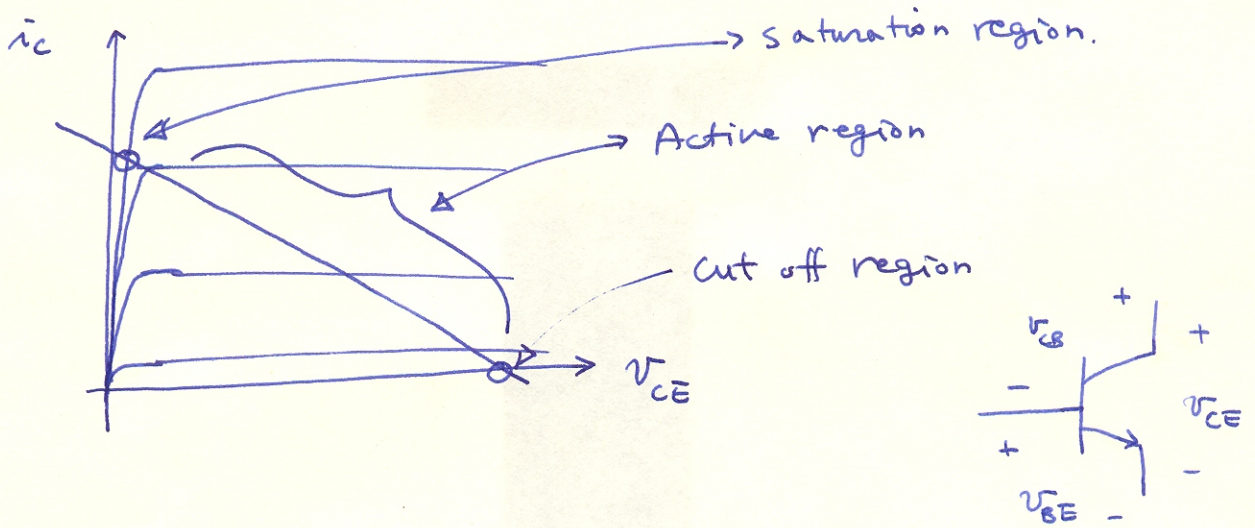 ic
saturation region.
Active region
cut off region
vCE
+
vCB
+
−
vCE
+
−
vBE −